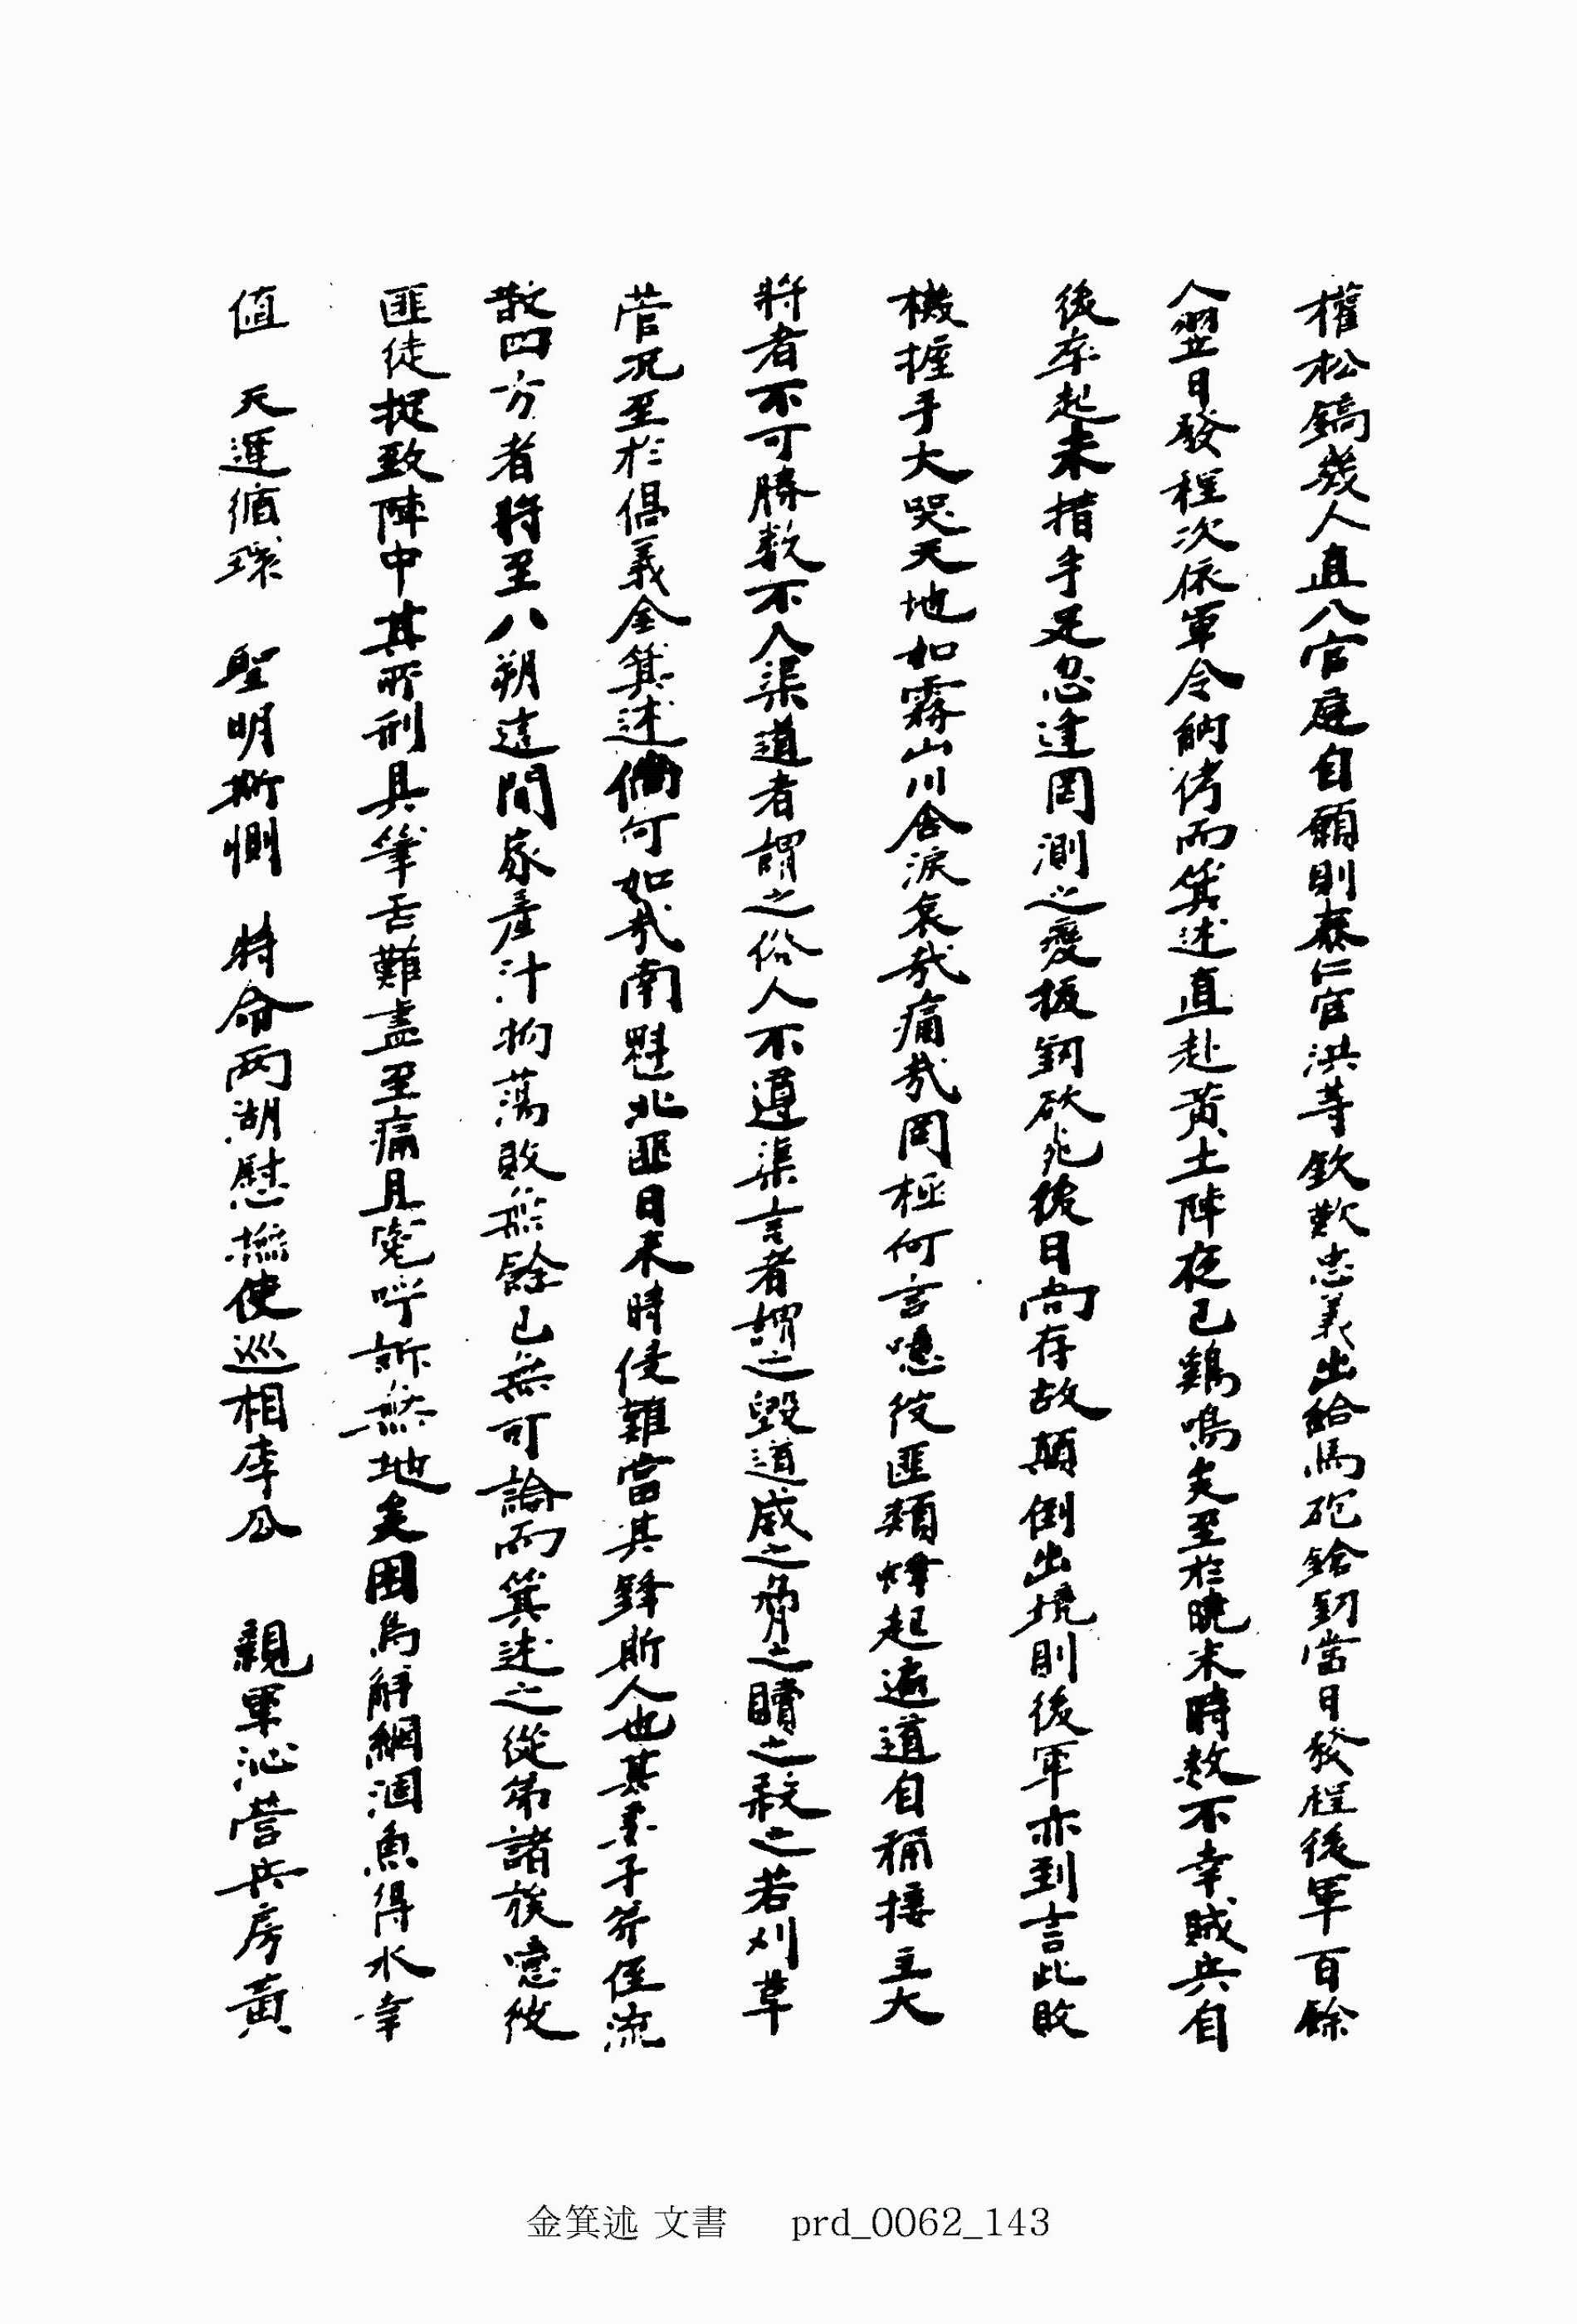 權松鎬幾人直入官庭自願則泰仁官洪等欽歎忠義出給馬砲鎗釰當日發程後軍百餘
人翌日發程次依軍令納侤而箕述直赴黃土陣夜已鷄鳴矣至於曉末時數不幸賊兵自
後卒起未措手足忽逢罔測之變拔釰砍死後日尙存故顚倒出境則後軍亦到言此敗
機握手大哭天地如霧山川含淚哀哉痛哉罔極何言噫彼匪類烽起遍道自稱接主大
將者不可勝數不入渠道者謂之俗人不遵渠言者謂之毁道威之脅之贖之殺之若刈草
菅况至於倡義金箕述儞何如哉南魁北匪日來時侵難當其鋒斯人也其妻子弟侄流
散四方者將至八朔這間家產汁物蕩敗無餘已無可論而箕述之從弟諸族噫彼
匪徒捉致陣中其所刑具筆舌難盡至痛且寃呼訴無地矣困鳥解網涸魚得水幸
値　天運循環　聖明斯惻　特命两湖慰撫使巡相李公　親軍沁營兵房黃
金箕述 文書 prd_0062_143